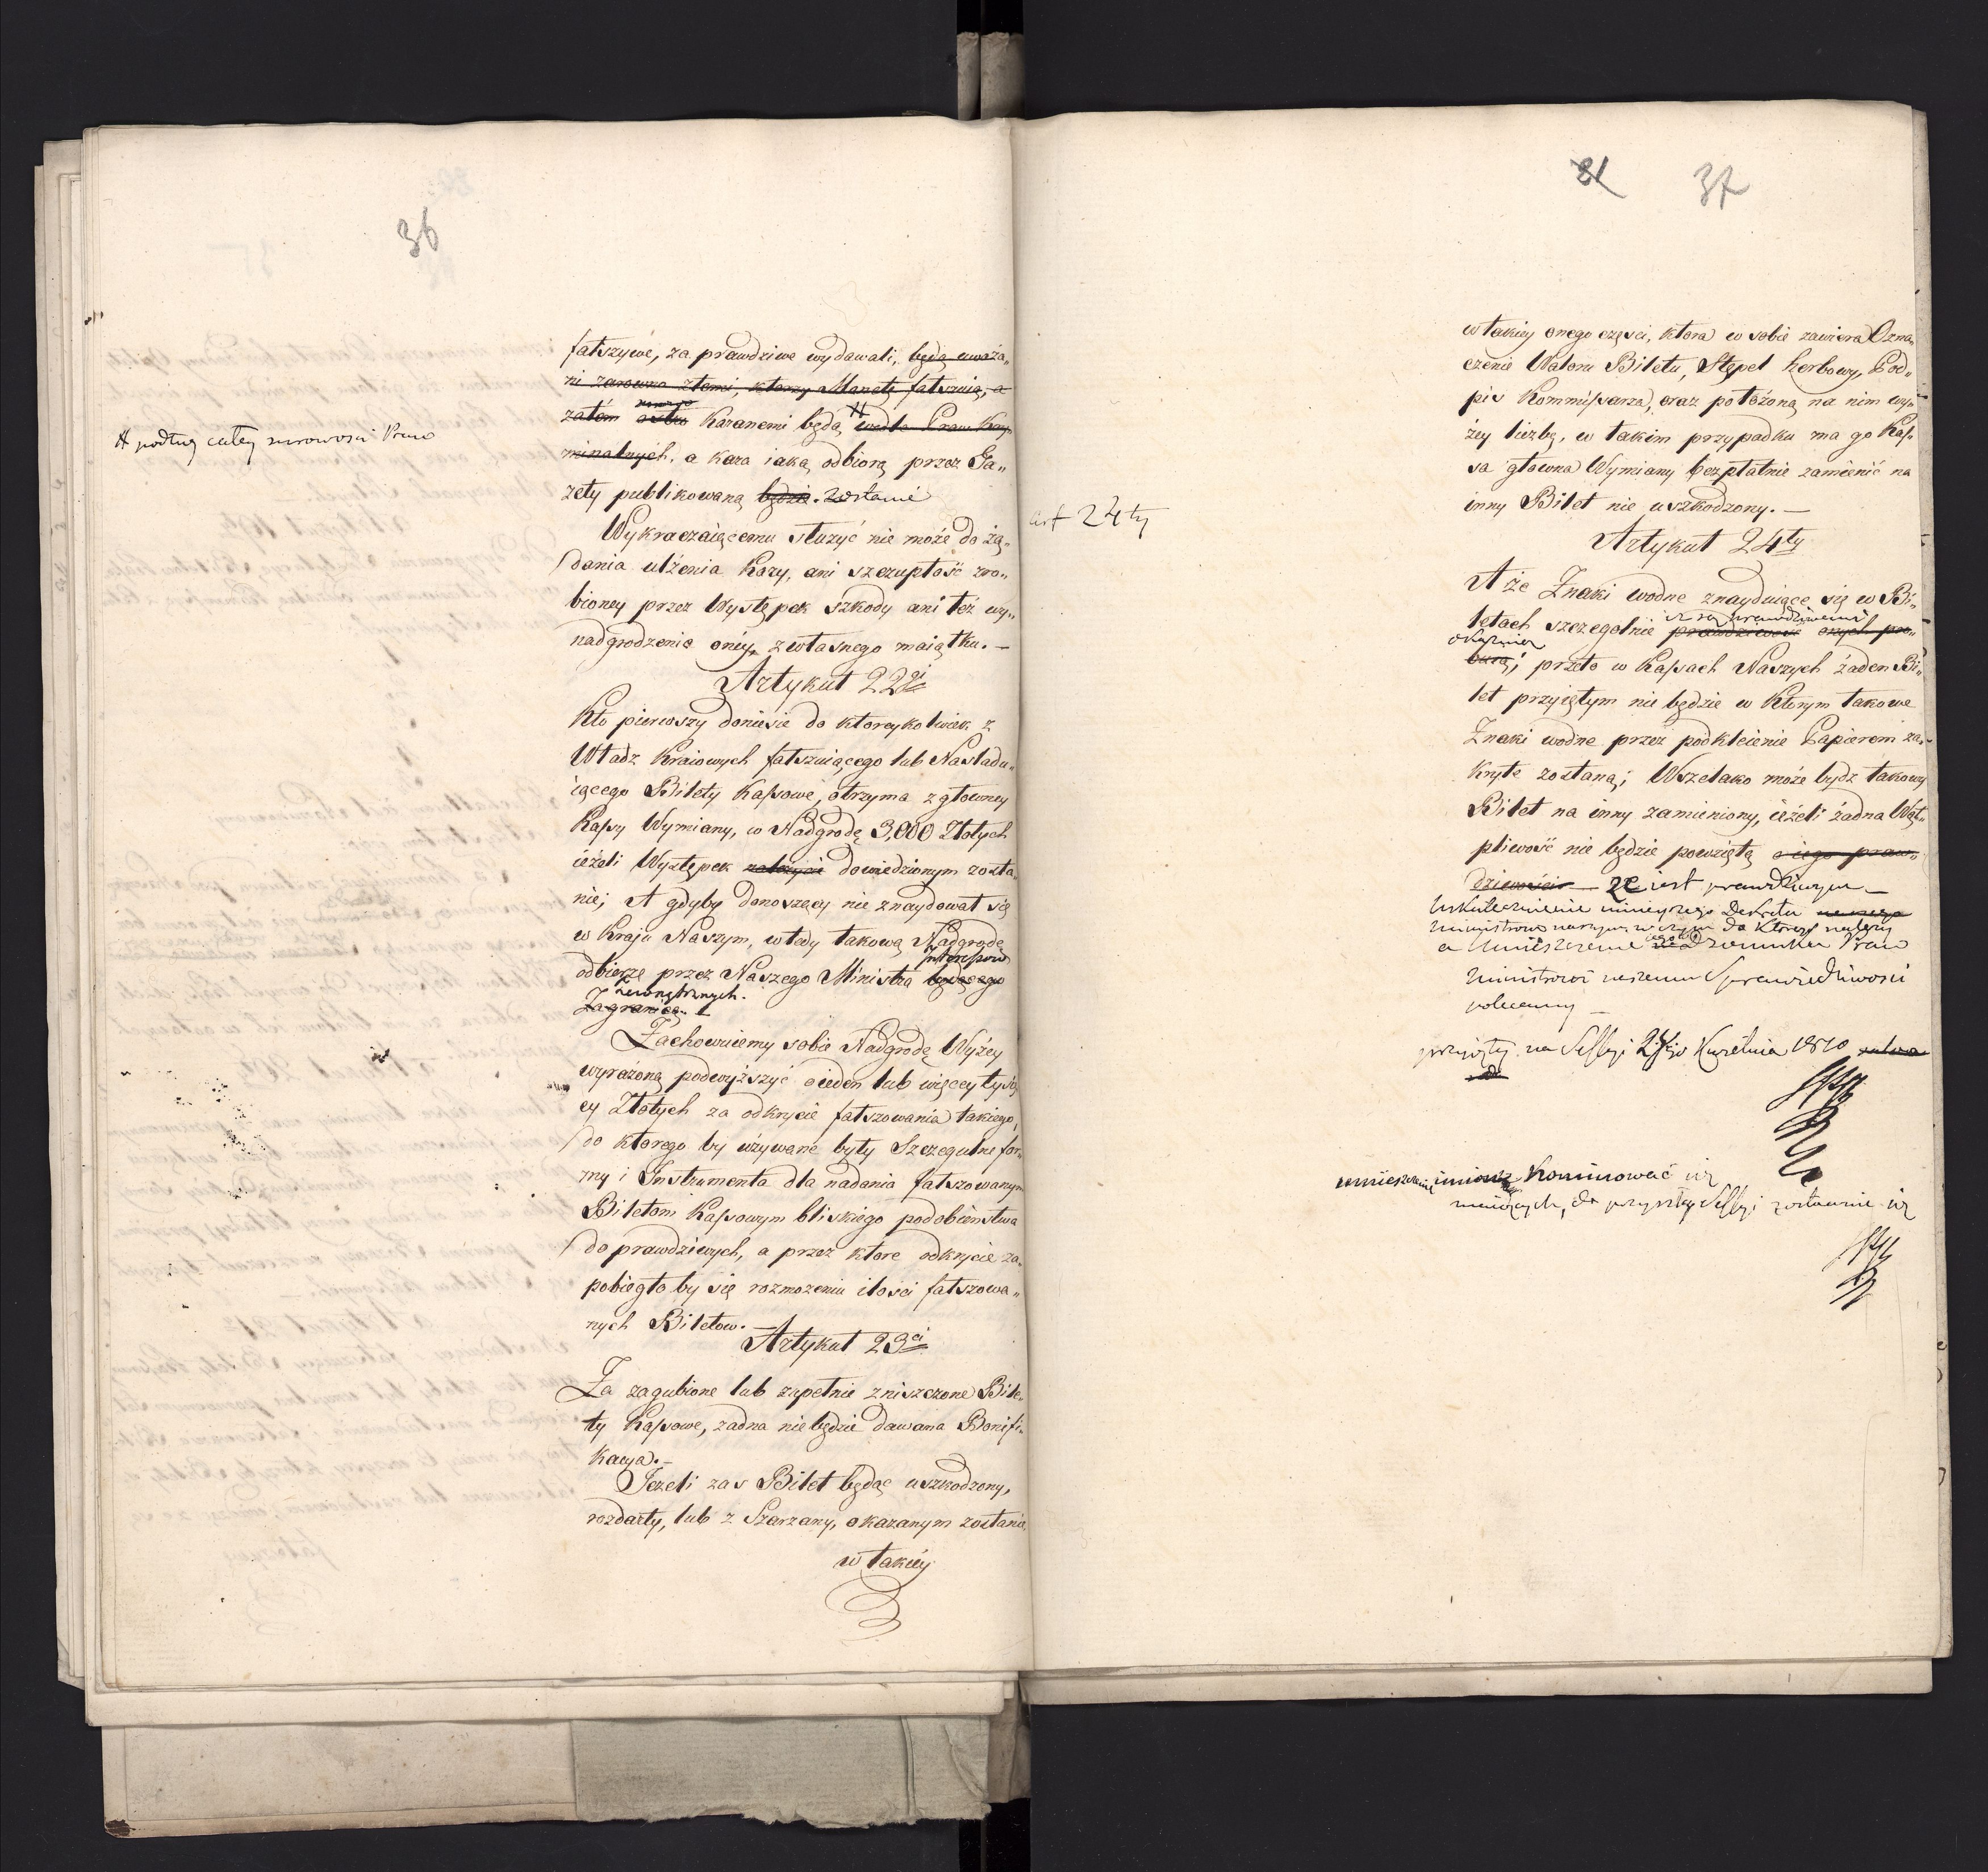 36
fałszywe, za prawdziwe wydawali, będą uważa„
ni zarowno z temi, ktorzy Monetę fałszuią, a
zatém ostro karanemi będą # wedle Praw Kry„
minalnych. a kara iaką odbiorą przez Ga„
zety publikowaną będzie. zostanie
# podług całey surowosci Praw
Wykraczaiącemu służyć nie może do żą„
dania ulżenia Kary, ani szczupłość zro„
bioney przez Występek szkody ani też wy„
nadgrodzenie oney z własnego maiątku. —
Artykuł 22gi
Kto pierwszy doniesie do ktoreykolwiek z
Władz Kraiowych fałszuiącego lub Nasladu„
iącego Bilety Kassowe, otrzyma z głowney
Kassy Wymiany, w Nadgrodę 3,000 Złotych
ieżeli Występek dowiedzionym zosta„
nie; A gdyby donoszący nie znaydował się
w Kraju Naszym, wtedy takową Nadgrodę
Interessow
odbierze przez Naszego Ministra będącego
zewnętrznych.
Zagranicą.
Zachowuiemy sobie Nadgrodę Wyżey
wyrażoną podwyższyć o ieden lub więcey tysię
cy Złotych za odkrycie fałszowania takiego,
do ktorego by używane były Szczegulne for„
my i Instrumenta dla nadania fałszowanym
Biletom Kassowym bliskiego podobieństwa
do prawdziwych, a przez ktore odkrycie za„
pobiegło by się rozmożeniu ilości fałszowa„
nych Biletow. —
Artykuł 23ci
Za zagubione lub zupełnie zniszczone Bile„
ty Kassowe, żadna nie będzie dawana Bonifi„
kacya. —
Jeżeli zas Bilet będąc uszkodzony,
rozdarty, lub z Szarzany, okazanym zostanie
w takiey
31 37
w takiey onego częsci, ktora w sobie zawiera Ozna„
czenie Waloru Biletu, Stępel herbowy, Pod„
pis Kommissarza, oraz położoną na nim wy„
żey liczbę, w takim przypadku ma go Kas„
sa głowna Wymiany bezpłatnie zamienić na
inny Bilet nie uszkodzony. —
art 24ty
Artykuł 24ty
A że Znaki wodne znayduiące się w Bi„
iż są prawdziwemi
letach szczegolnie prawdziwość onych po„
okazuią
przeto w Kassach Naszych żaden Bi„
let przyiętym nie będzie w ktorym takowe
Znaki wodne przez podkleienie Papierem za„
kryte zostaną; Wszelako może bydz takowy
Bilet na inny zamieniony, ieżeli żadna Wąt„
pliwość nie będzie powziętą o iego praw„
dziwości — że iest prawdziwym —
Uskutecznienie ninieyszego Dekretu
Ministrowi naszym, w czym do ktorego należy
a Umieszczenie iego w Dzienniku Praw
Ministrowi naszemu Sprawiedliwosci
polecamy —
przyięty na Sessyi Kwietnia 1810
Kominować się
maiących, do przyszłey Sessyi zostawuie się